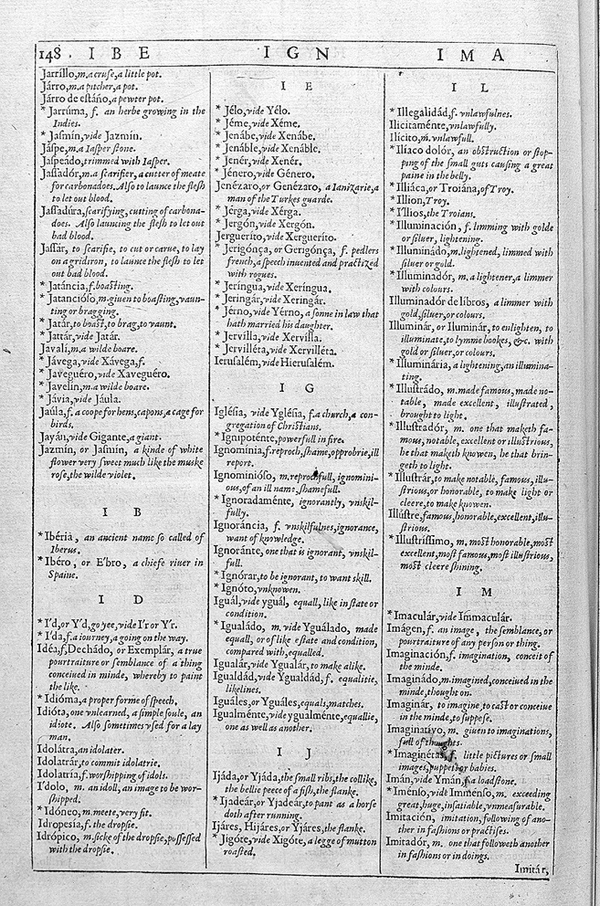 148. I B E I G N I M A
Jarríllo, m. a cruse, a little pot.
Járro, m. a pitcher, a pot.
Járro de estáño, a pewter pot.
* Jarrúma, f. an herbe growing in the
Indies.
* Jasmín, vide Jazmin.
Jáspe, m. a Iasper stone.
Jaspeádo, trimmed with Iasper.
Jassadór, m. a scarifier, a cutter of meate
for carbonadoes. Also to launce the flesh
to let out blood.
Jassadúra, scarifying, cutting of carbona-
does. Also launcing the flesh to let out
bad blood.
Jassár, to scarifie, to cut or carue, to lay
on a gridiron, to launce the flesh to let
out bad blood.
* Jatáncia, f. boasting.
* Jatancióso, m. giuen to boasting, vaun-
ting or bragging.
* Jatár, to boast, to brag, to vaunt.
* Jattár, vide Jatár.
Javalí, m. a wilde boare.
* Jávega, vide Xávega, f.
* Javeguéro, vide Xaveguéro.
* Javelín, m. a wilde boare.
* Jávia, vide Jáula.
Jaúla, f. a coope for hens, capons, a cage for
birds.
Jayán, vide Gigante, a giant.
Jazmín, or Jasmín, a kinde of white
flower very sweet much like the muske
rose, the wilde violet.
I B
* Ibéria, an ancient name so called of
Iberus.
* Ibéro, or E'bro, a chiefe riuer in
Spaine.
I D
* I'd, or Y'd, go yee, vide I'r or Y'r.
* I'da, f. a iourney, a going on the way.
Idéa, f. Dechádo, or Exemplár, a true
pourtraiture or semblance of a thing
conceiued in minde, whereby to paint
the like.
* Idióma, a proper forme of speech.
Idióta, one vnlearned, a simple soule, an
idiote. Also sometimes vsed for a lay
man.
Idolátra, an idolater.
Idolatrár, to commit idolatrie.
Idolatría, f. worshipping of idols.
I'dolo, m. an idoll, an image to be wor-
shipped.
* Idóneo, m. meete, very fit.
Idropesía, f. the dropsie.
Idrópico, m. sicke of the dropsie, possessed
with the dropsie.
I E
* Jélo, vide Yélo.
* Jéme, vide Xéme.
* Jenábe, vide Xenábe.
* Jenáble, vide Xenáble.
* Jenér, vide Xenér.
* Jénero, vide Género.
Jenézaro, or Genézaro, a Ianizarie, a
man of the Turkes guarde.
* Jérga, vide Xérga.
* Jergón, vide Xergón.
Jerguerito, vide Xerguerito.
* Jerigónça, or Gerigónça, f. pedlers
french, a speech inuented and practized
with rogues.
* Jeringa, vide Xeringua.
* Jeringár, vide Xeringár.
* Jérno, vide Yérno, a sonne in law that
hath married his daughter.
* Jervilla, vide Xervilla.
* Jervilléta, vide Xervilléta.
Ierusalém, vide Hierusalém.
I G
Iglésia, vide Yglésia, f. a church, a con-
gregation of Christians.
* Ignipoténte, powerfull in fire.
Ignomínia, f. reproch, shame, opprobrie, ill
report.
Ignominióso, m. reprochfull, ignomini-
ous, of an ill name, shamefull.
* Ignoradaménte, ignorantly, vnskil-
fully.
Ignoráncia, f. vnskilfulnes, ignorance,
want of knowledge.
Ignoránte, one that is ignorant, vnskil-
full.
* Ignórar, to be ignorant, to want skill.
* Ignóto, vnknowen.
Iguál, vide yguál, equall, like in state or
condition.
* Igualádo, m. vide Yguáládo, made
equall, or of like estate and condition,
compared with, equalled.
Igualár, vide Ygualár, to make alike.
Igualdád, vide Ygualdád, f. equalitie,
likelines.
Iguáles, or Yguáles, equals, matches.
Igualménte, vide ygualménte, equallie,
one as well as another.
I J
Ijáda, or Yjáda, the small ribs, the collike,
the bellie peece of a fish, the flanke.
* Ijadeár, or Yjadeár, to pant as a horse
doth after running.
Ijáres, Hijáres, or Yjáres, the flanke.
* Jigóte, vide Xigóte, a legge of mutton
roasted.
I L
* Illegalidád, f. vnlawfulnes.
Ilicitaménte, vnlawfully.
Ilícito, m. vnlawfull.
* Iliaco dolór, an obstruction or stop-
ping of the small guts causing a great
paine in the belly.
* Illiáca, or Troiána, of Troy.
* Illion, Troy.
* I'llios, the Troians.
* Illuminación, f. limming with golde
or siluer, lightening.
* Illuminádo, m. lightened, limmed with
siluer or gold.
* Illuminadór, m. a lightener, a limmer
with colours.
Illuminadór de libros, a limmer with
gold, siluer, or colours.
Illuminár, or Iluminár, to enlighten, to
illuminate, to lymne bookes, &c. with
gold or siluer, or colours.
* Illuminária, a lightening, an illumina-
ting.
* Illustrádo, m. made famous, made no-
table, made excellent, illustrated,
brought to light.
* Illustradór, m. one that maketh fa-
mous, notable, excellent or illustrious,
he that maketh knowen, he that brin-
geth to light.
* Illustrár, to make notable, famous, illu-
strious, or honorable, to make light or
cleere, to make knowen.
Illústre, famous, honorable, excellent, illu-
strious.
* Illustríssimo, m. most honorable, most
excellent, most famous, most illustrious,
most cleere shining.
I M
* Imaculár, vide Immaculár.
Imágen, f. an image, the semblance, or
pourtraiture of any person or thing.
Imaginación, f. imagination, conceit of
the minde.
Imaginádo, m. imagined, conceiued in the
minde, thought on.
Imaginár, to imagine, to cast or conceiue
in the minde, to suppose.
Imaginatívo, m. giuen to imaginations,
full of thoughts.
* Imaginétas, f. little pictures or small
images, puppets or babies.
Imán, vide Ymán, f. a loadstone.
* Iménso, vide Imménso, m. exceeding
great, huge, insatiable, vnmeasurable.
Imitación, imitation, following of ano-
ther in fashions or practises.
Imitadór, m. one that followeth another
in fashions or in doings.
Imitár,